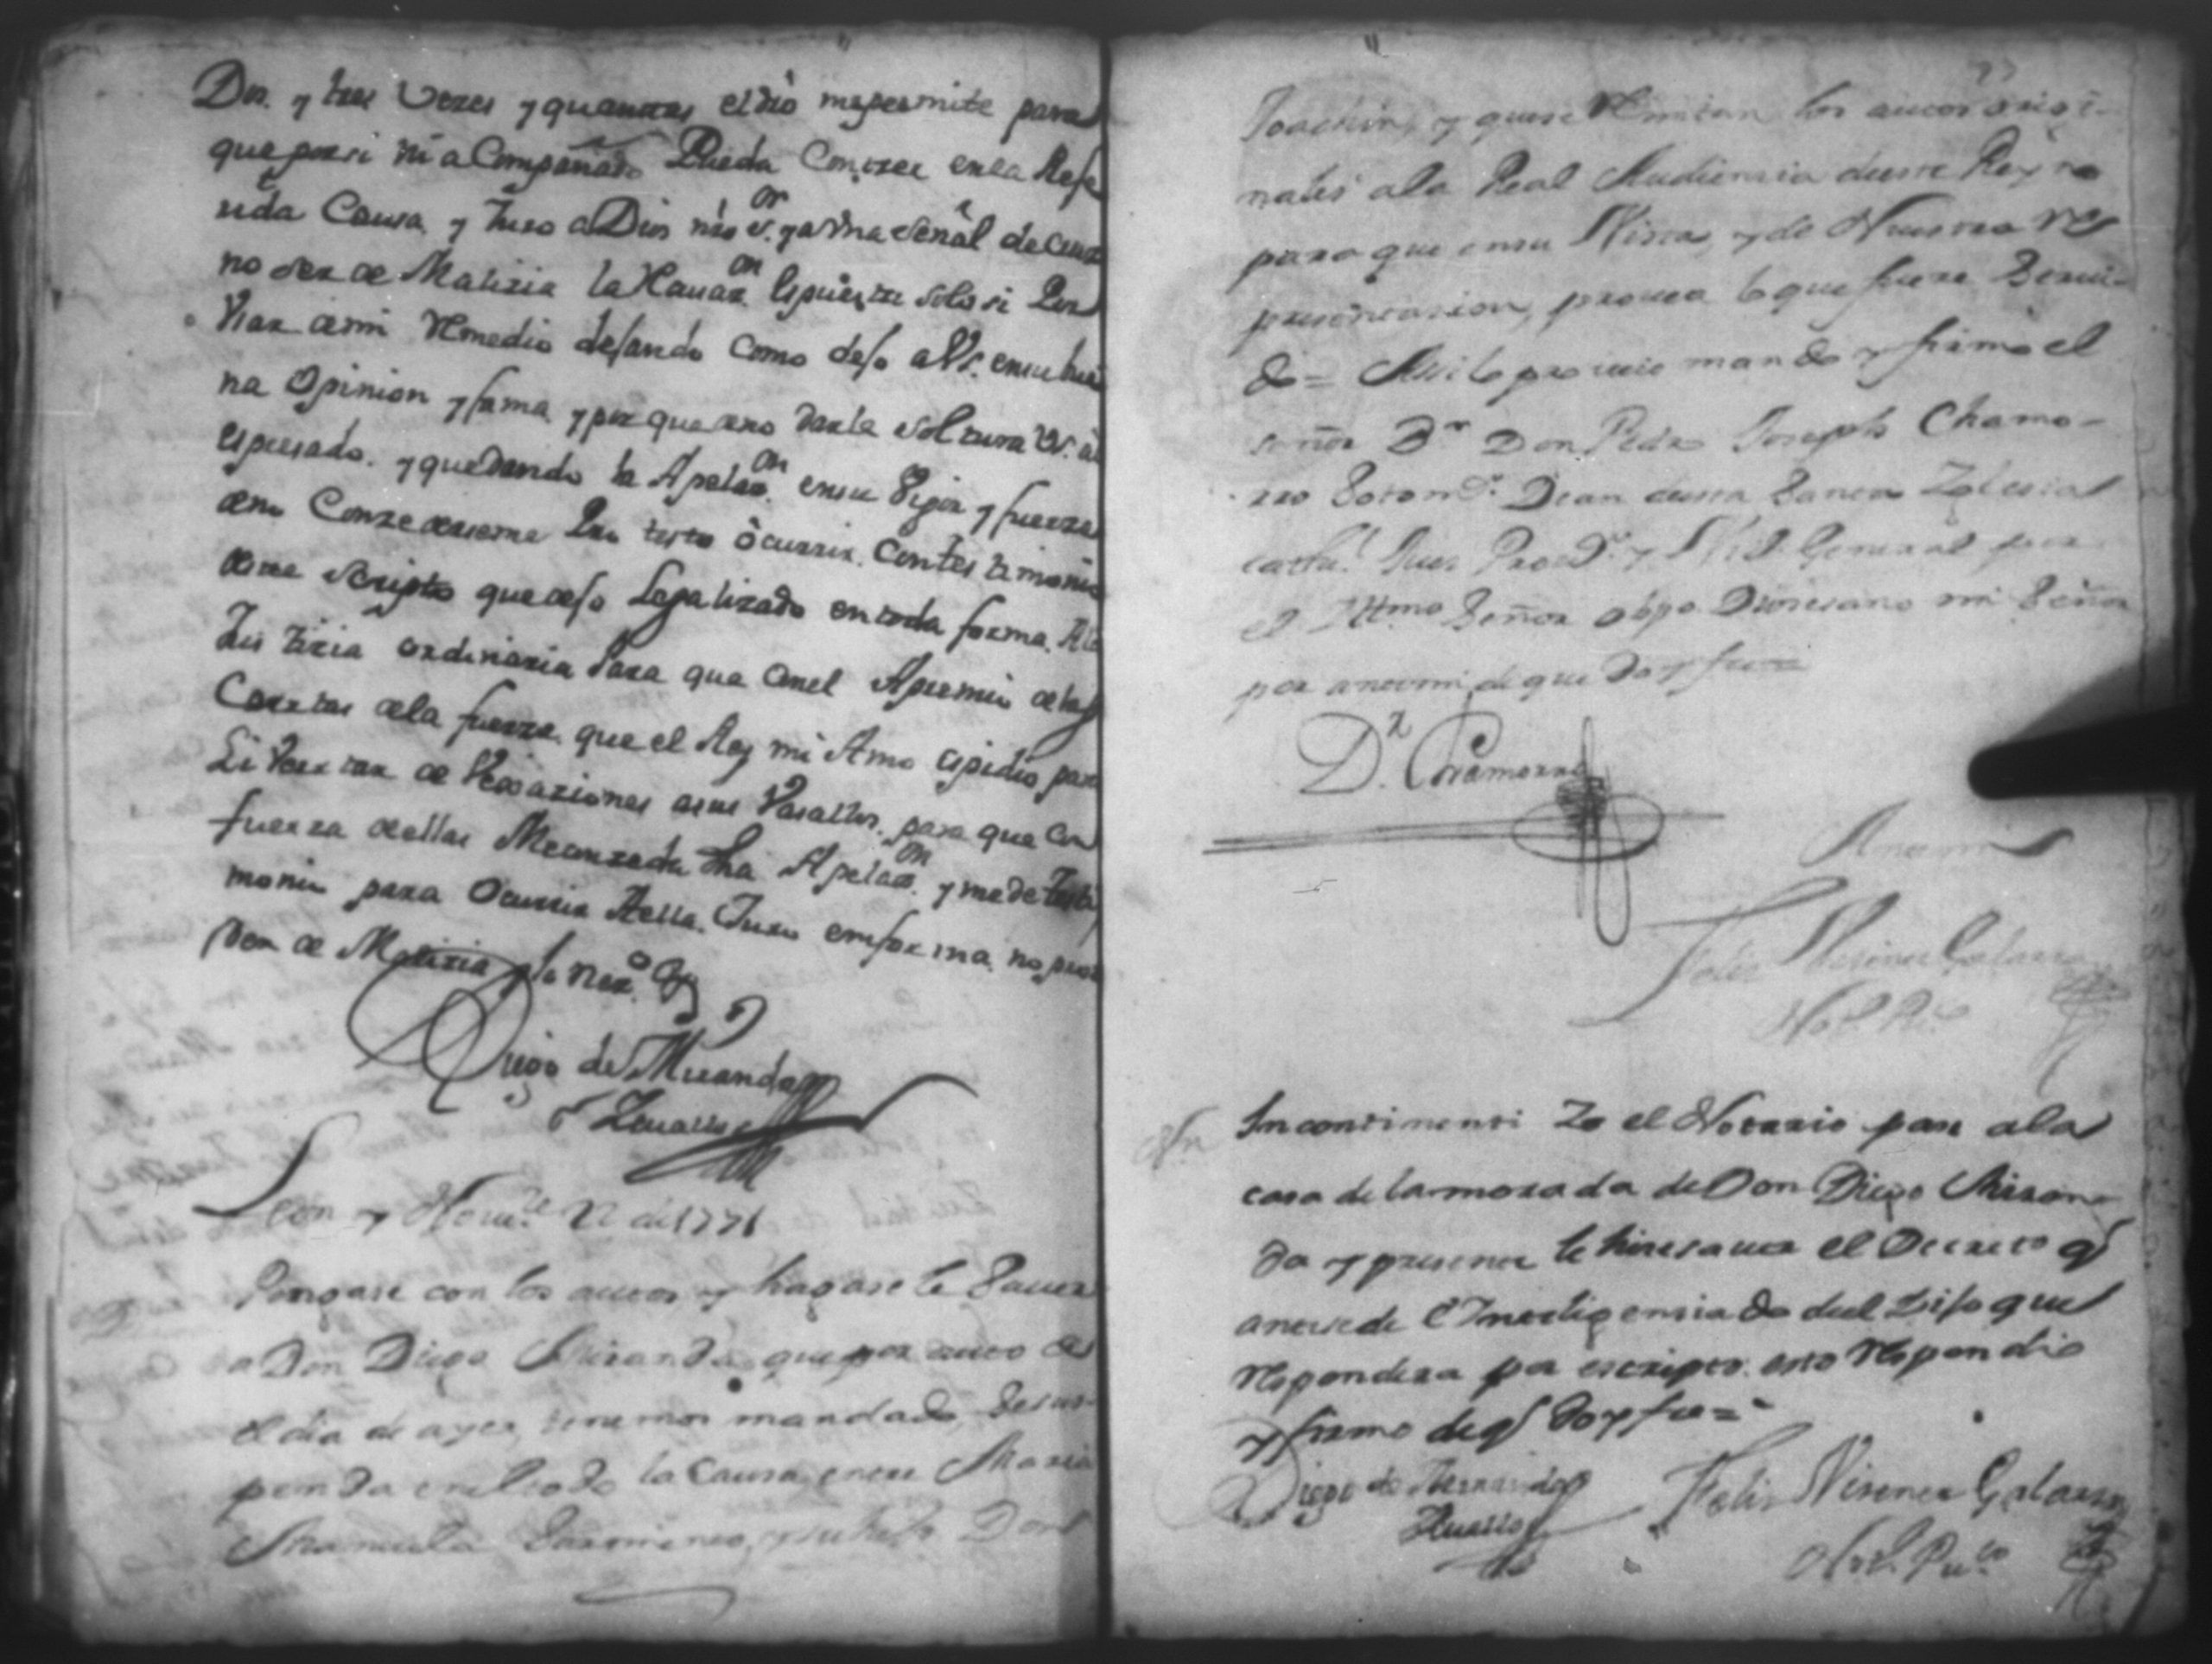 Dos. y tres Vezes y quantas el dro mepermite para
que porsi ni aCompañado Pueda Conozer enla Refe
rida Causa, y Juro a Dios nro Sor. y a Vna Señal de Cruz
no ser de Malizia la Recuson. Espuesta solo si Por
Vsar demi Remedio desando como deso a VS. ensu bue
na Opinion y fama, y por que eno darla Soltura VS. a lo
espresado. y quedando la Apelaon. ensu Vigor y fuerza
Conzederseme Pro testo ocurrir. Contestimonio
deste Scripto que deso Legalizado entoda forma. A la
Jus tizia ordinaria Para que Conel Apremio de las
Cartas dela fuerza, que el Rey mi Amo espidio, para
Livertar de Vejaziones asus Vasallos, para que Con
fuerza dellas Meconzeda Dha Apelaon. y mede testi
monio para Ocurrir Aella. Juro enforma, no pro
seder de Malizia y lo nezo. &a
Diego de Miranda
Zeuallos
Leon y Nouie. 22 de 1771
Pongase con los autos, y hagase le Sauer
a Don Diego Miranda, que por auto de
el dia de ayer, tenemos mandado, Se sus-
penda en estado la Causa, entre Maria
Manuela Sarmiento, y su hijo Don
Joachin, y quese Remitan los autos origi-
nales ala Real Audiencia deeste Reyno
para que ensu Vista, y de Nuestra Re
presentasion, provea lo que fuere Serui-
do = Asi lo proveio mando y firmo el
señor Dr. Don Pedro Joseph Chamo-
rro Sotomr. Dean desta Santa Yglesia
cathl. Juez Provor. y Vico. General por
el Illmo Señor obpo Diocesano mi Señor
por antemi de que doy fee
Dr. Chamorro
Antemi
Felis Visente Galarza
Noto. Puco
Incontinenti Yo el Notario pase ala
casa de lamorada de Don Diego Miran-
da y presente le hise sauer el Decreto q
antesede e Inteligensiado deel Dijo que
respondera por escripto. esto respondio
y firmo deq doy fee =
Diego de Miranda
Zeuallos
Felis Visente Galarza
Noto. Puco